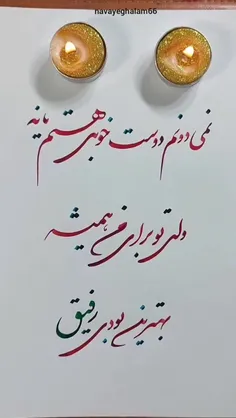 navayeghalam66
نمی دونم دوست خوبی هستم یا نه
ولی تو برای من همیشه
بهترین بودی رفیق